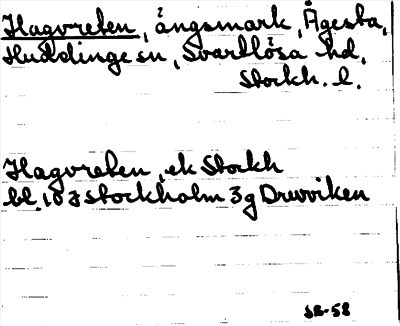 Hagvreten, ängsmark, Ågesta,
Huddinge sn, Svartlösa hd,
Stockh. l.
Hagvreten, ek Stockh
bl. 10 I Stockholm 3g Drevviken
SB-58